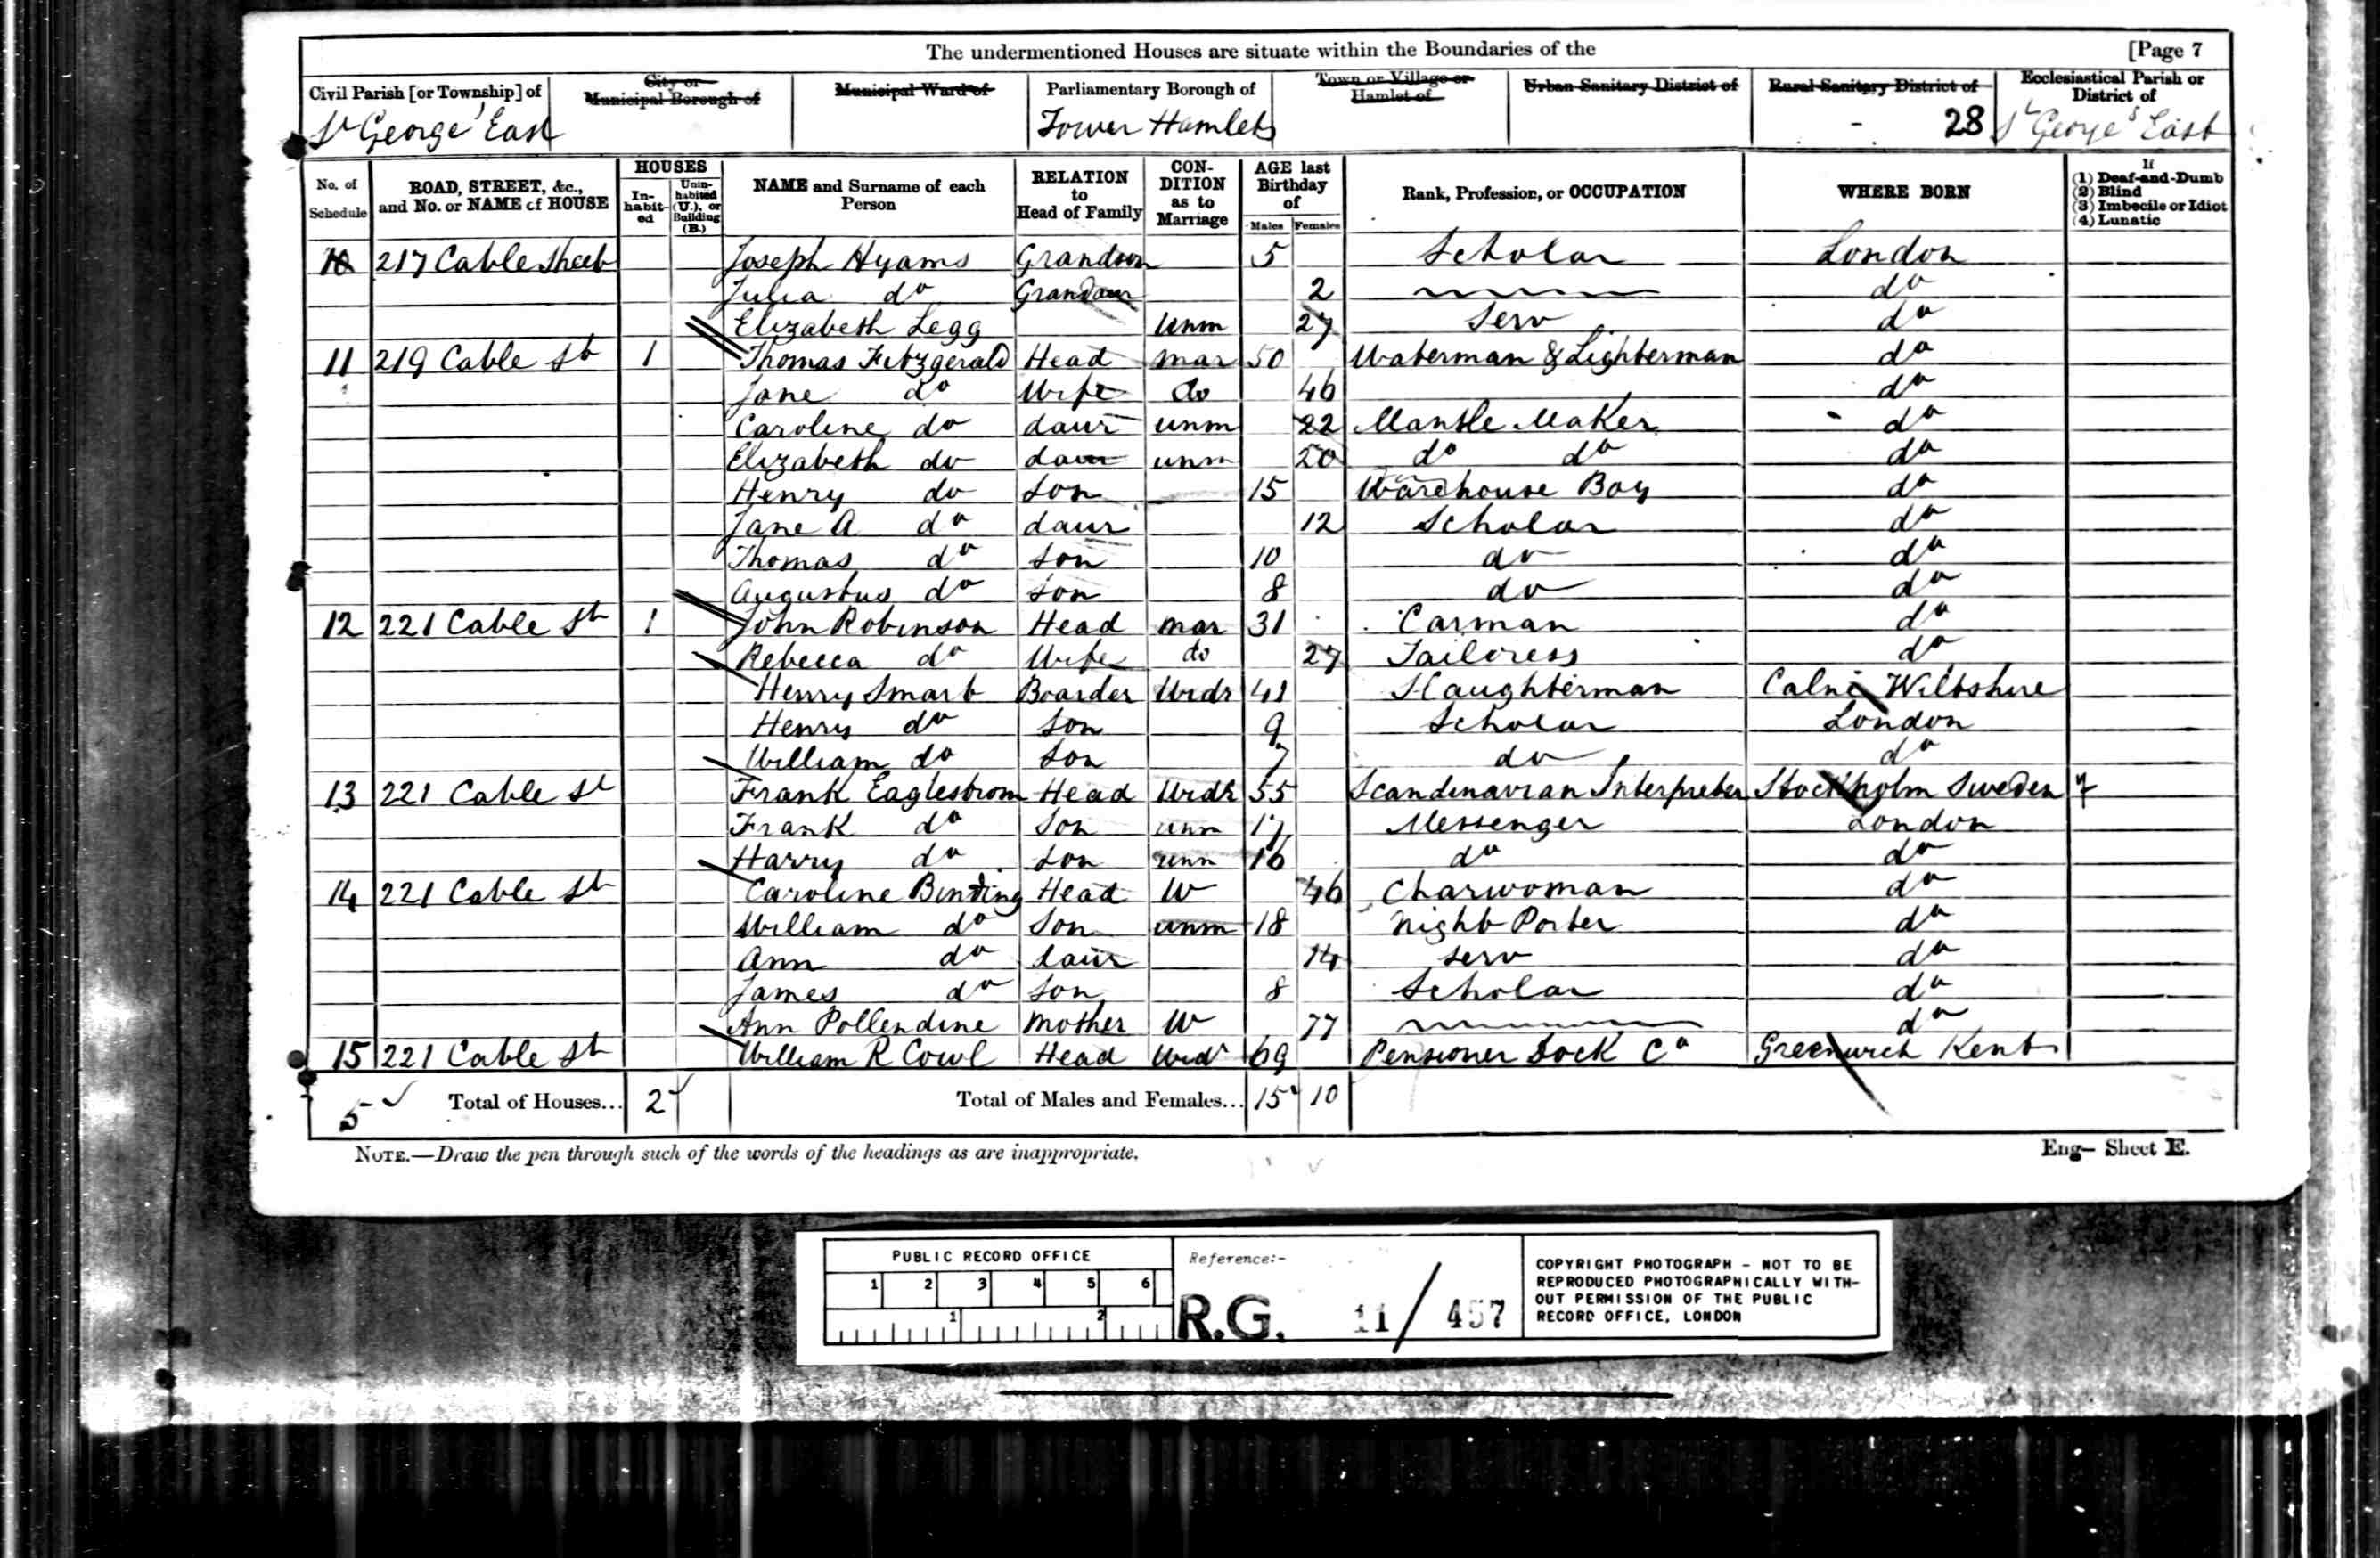 The undermentioned Houses are situate within the Boundaries of the [Page 7
Civil Parish [or Township] of City or Municipal Borough of Municipal Ward of Parliamentary Borough of Town or Village or Hamlet of Urban Sanitary District of Rural Sanitary District of Ecclesiastical Parish or District of
St George East Tower Hamlets 28 St George's East
No. of Schedule ROAD, STREET, &c., and No. or NAME of HOUSE HOUSES In-habit-ed Unin-habited (U.), or Building (B.) NAME and Surname of each Person RELATION to Head of Family CON-DITION as to Marriage AGE last Birthday of Males Females Rank, Profession, or OCCUPATION WHERE BORN If (1) Deaf-and-Dumb (2) Blind (3) Imbecile or Idiot (4) Lunatic
10 217 Cable Street Joseph Hyams Grandson 5 Scholar London
Julia do Grandaur 2 do
Elizabeth Legg Unm 27 Serv do
11 219 Cable St 1 Thomas Fitzgerald Head mar 50 Waterman & Lighterman do
Jane do Wife do 46 do
Caroline do daur unm 22 Mantle Maker do
Elizabeth do daur unm 20 do do do
Henry do Son 15 Warehouse Boy do
Jane A do daur 12 Scholar do
Thomas do Son 10 do do
Augustus do Son 8 do do
12 221 Cable St 1 John Robinson Head mar 31 Carman do
Rebecca do Wife do 27 Tailoress do
Henry Smart Boarder Widr 41 Slaughterman Calne Wiltshire
Henry do Son 9 Scholar London
William do Son 7 do do
13 221 Cable St Frank Eaglestrom Head Widr 55 Scandinavian Interpreter Stockholm Sweden
Frank do Son unm 17 Messenger London
Harry do Son unm 16 do do
14 221 Cable St Caroline Binding Head W 46 Charwoman do
William do Son unm 18 Night Porter do
Ann do daur 14 serv do
James do Son 8 Scholar do
Ann Pollendine Mother W 77 do
15 221 Cable St William R Cowl Head Widr 69 Pensioner Dock Co Greenwich Kent
5 Total of Houses... 2 Total of Males and Females... 15 10
NOTE.—Draw the pen through such of the words of the headings as are inappropriate.
Eng— Sheet E.
PUBLIC RECORD OFFICE
1 2 3 4 5 6
1 2
Reference:-
R.G. 11 / 457
COPYRIGHT PHOTOGRAPH – NOT TO BE
REPRODUCED PHOTOGRAPHICALLY WITH-
OUT PERMISSION OF THE PUBLIC
RECORD OFFICE, LONDON